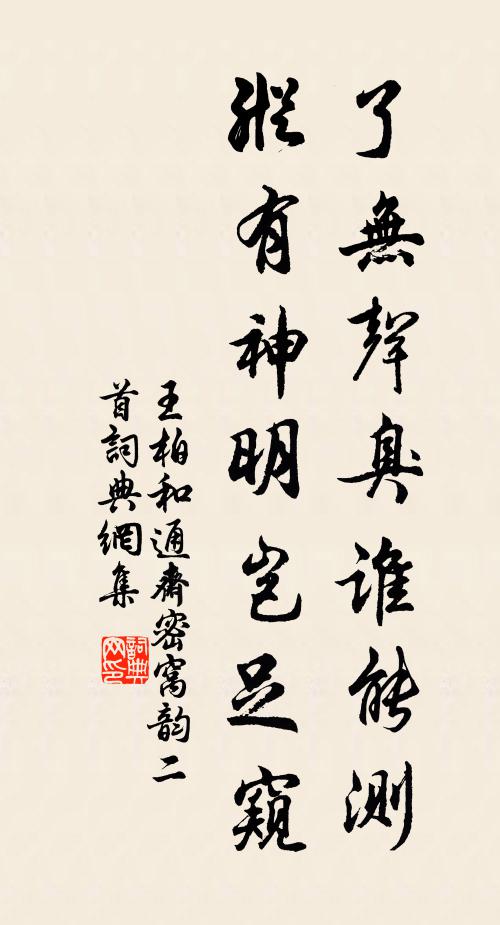 了無聲臭誰能測
縱有神明豈足窺
王柏和通齋密窩韵二
首詞典網集
詞典
网印